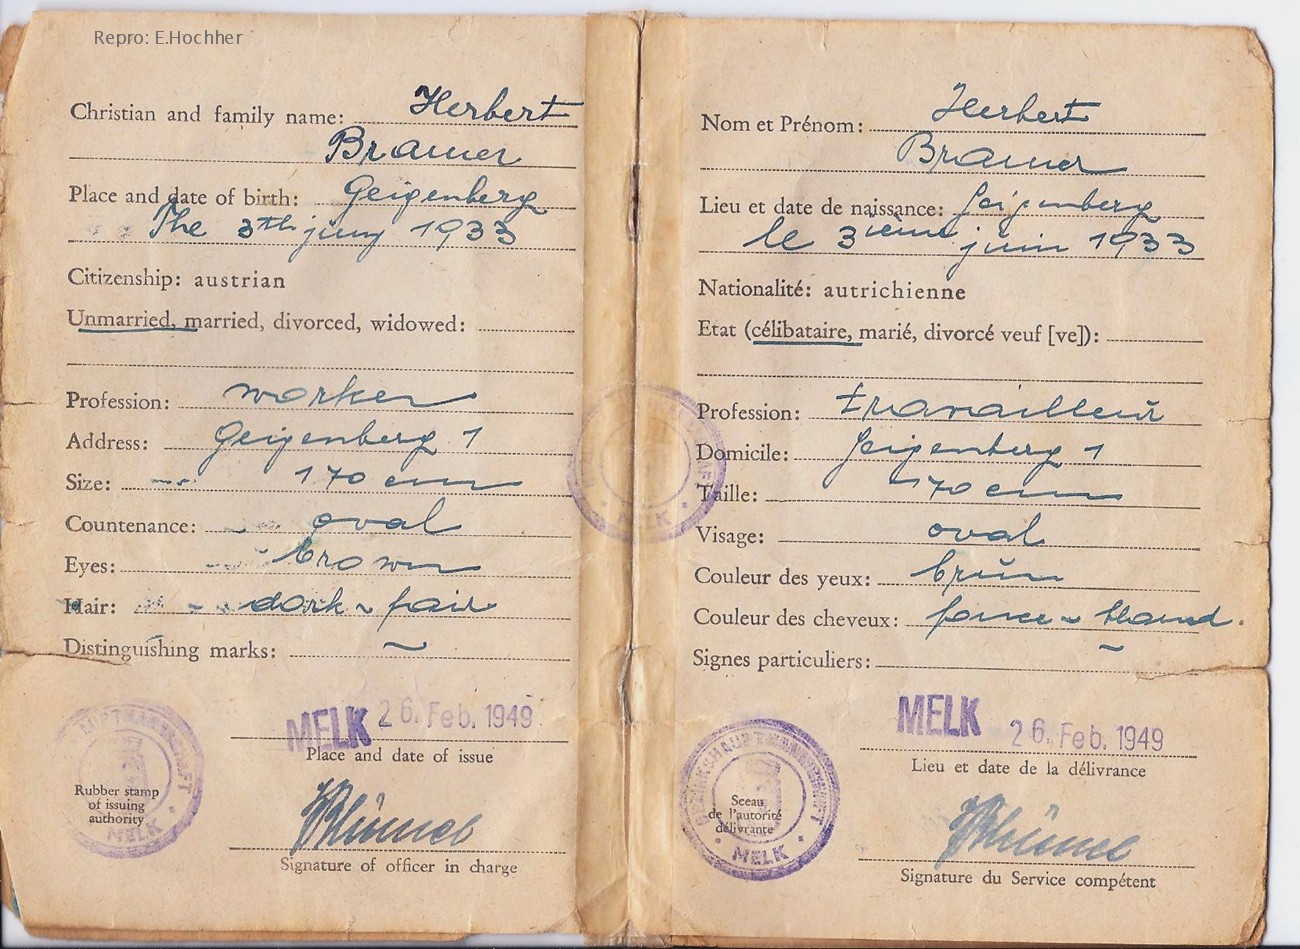 Repro: E.Hochher
Christian and family name: Herbert
Bramer
Place and date of birth: Geigenberg
The 3th juny 1933
Citizenship: austrian
Unmarried, married, divorced, widowed:
Profession: worker
Address: Geigenberg 1
Size: 170 cm
Countenance: oval
Eyes: brown
Hair: dark-fair
Distinguishing marks: ~
MELK 26. Feb. 1949
Place and date of issue
Rubber stamp
of issuing
authority
MELK
Signature of officer in charge
MELK
Nom et Prénom: Herbert
Bramer
Lieu et date de naissance: Geigenberg
le 3ième juin 1933
Nationalité: autrichienne
Etat (célibataire, marié, divorcé veuf [ve]):
Profession: travailleur
Domicile: Geigenberg 1
Taille: 170 cm
Visage: oval
Couleur des yeux: brun
Couleur des cheveux: fonce-blond.
Signes particuliers: ~
MELK 26. Feb. 1949
Lieu et date de la délivrance
BEZIRKSHAUPTMANNSCHAFT
Sceau
de l'autorité
délivrante
MELK
Signature du Service compétent